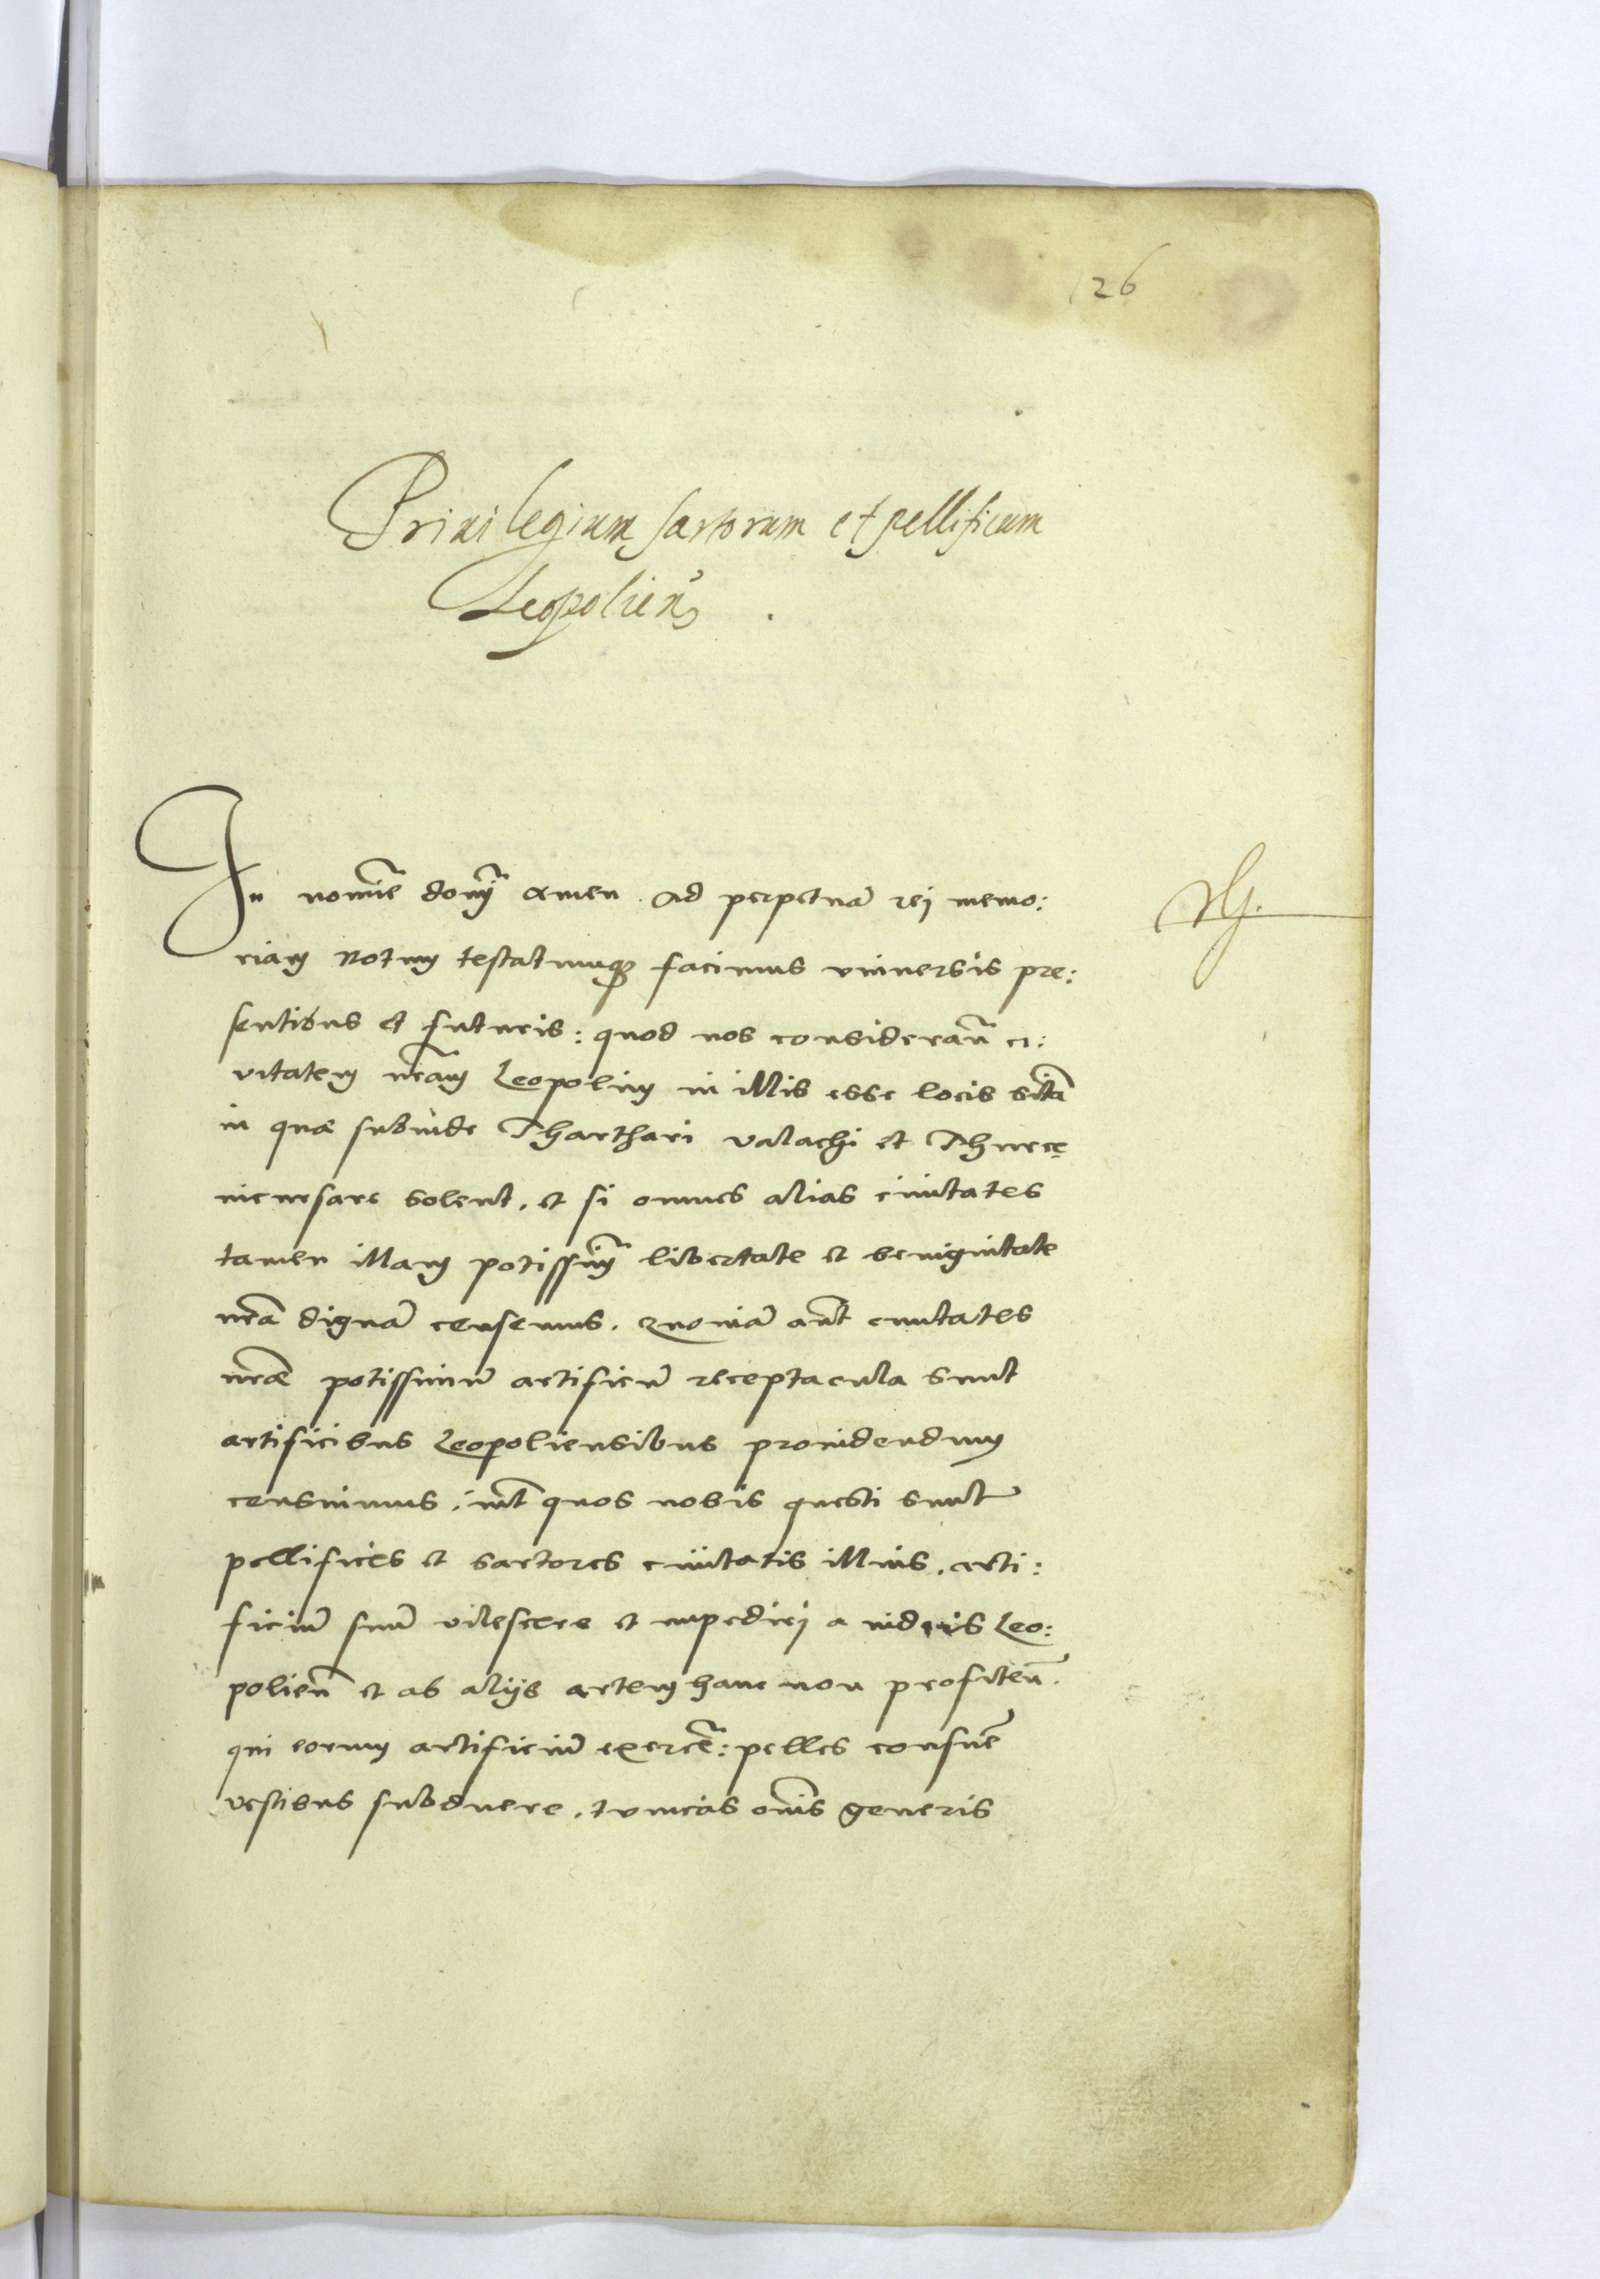 126
Priuilegium sartorum et pellificum
Leopolieñ
In nomīe domī amen. Ad perpetuā rej memo:
riam notum testatumqȝ facimus vniuersis pre:
sentibus et futuris: quod nos consideranī ci:
uitatem nr̄am Leopolim in illis esse locis sitā
in quæ subinde Tharthari valachi et Thurcę
incursare solent, et si omnes alias ciuitates
tamen illam potissimū libertate et benignitate
nr̄a dignā censemus. Quoniā aūt ciuitates
nr̄æ potissimū artificū receptacula sunt
artificibus Leopoliensibus prouidendum
censuimus, int̄ quos nobis questi sunt
pellifices et sartores ciuitatis illius, arti:
ficiū suū vilescere et impedirj a iudeis Leo:
polien̄ et ab alijs artem hanc non profiten̄.
qui eorum artificiū exercē: pelles consuē
vestibus subduere, tunicas om̄is generis